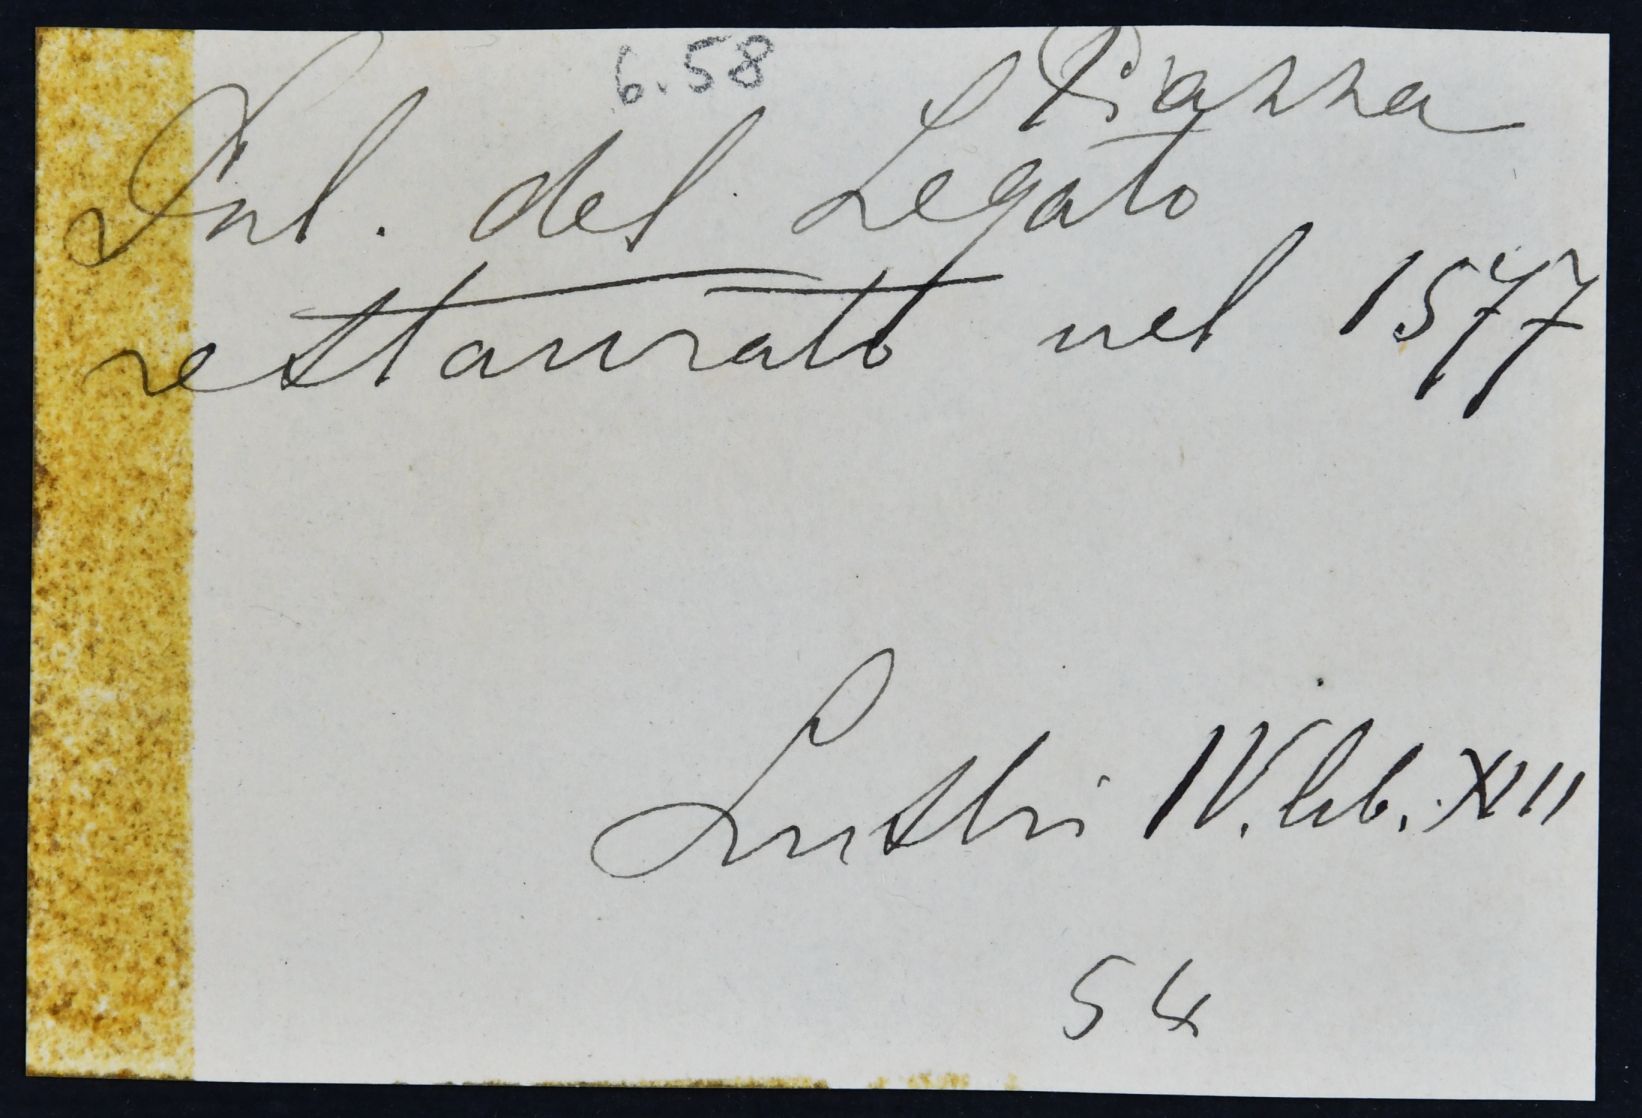 6.58
Piazza
Pal. del Legato
restaurato nel 1577
Lustri IV. lib. XIII
54